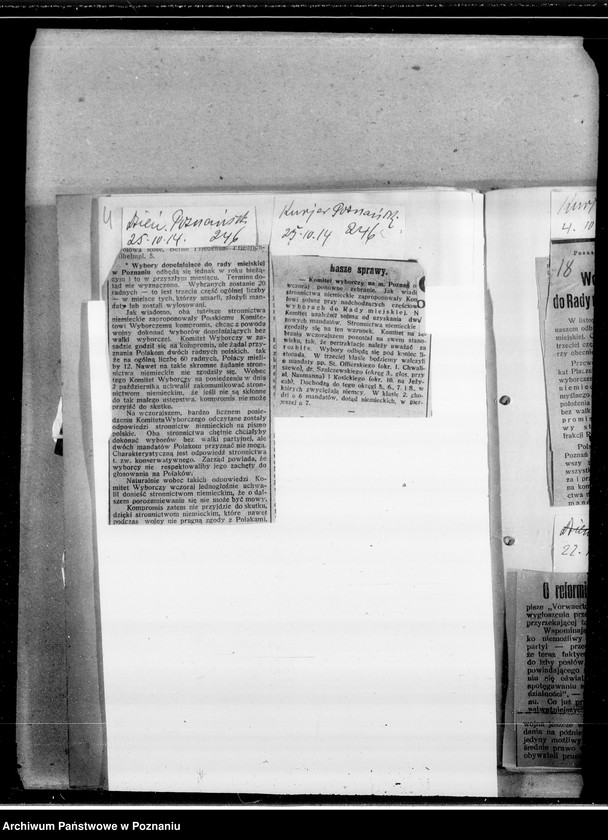 4
Dzień. Poznańsk
25.10.14. 246
Wilhelmpl. 5.
* Wybory dopełniające do rady miejskiej
w Poznaniu odbędą się jednak w roku bieżą-
cym i to w przyszłym miesiącu. Terminu do-
tąd nie wyznaczono. Wybranych zostanie 20
radnych — to jest trzecia część ogólnej liczby
— w miejsce tych, którzy umarli, złożyli man-
daty lub zostali wylosowani.
Jak wiadomo, oba tutejsze stronnictwa
niemieckie zaproponowały Polskiemu Komite-
towi Wyborczemu kompromis, chcąc z powodu
wojny dokonać wyborów dopełniających bez
walki wyborczej. Komitet Wyborczy w za-
sadzie godził się na kompromis, ale żądał przy-
znania Polakom dwóch radnych polskich, tak
że na ogólną liczbę 60 radnych, Polacy mieli-
by 12. Nawet na takie skromne żądanie stron-
nictwa niemieckie nie zgodziły się. Wobec
tego Komitet Wyborczy na posiedzeniu w dniu
2 października uchwalił zakomunikować stron-
nictwom niemieckim, że jeśli nie są skłonne
do tak małego ustępstwa, kompromis nie może
przyjść do skutku.
Na wczorajszem, bardzo licznem posie-
dzeniu Komitetu Wyborczego odczytane zostały
odpowiedzi stronnictw niemieckich na pismo
polskie. Oba stronnictwa chętnie chciałyby
dokonać wyborów bez walki partyjnej, ale
dwóch mandatów Polakom przyznać nie mogą.
Charakterystyczną jest odpowiedź stronnictwa
t. zw. konserwatywnego. Zarząd powiada, że
wyborcy nie respektowaliby jego zachęty do
głosowania na Polaków.
Naturalnie wobec takich odpowiedzi Ko-
mitet Wyborczy wczoraj jednogłośnie uchwa-
lił donieść stronnictwom niemieckim, że o dal-
szem porozumiewaniu się nie może być mowy.
Kompromis zatem nie przyjdzie do skutku,
dzięki stronnictwom niemieckim, które nawet
podczas wojny nie pragną zgody z Polakami.
Kurjer Poznańsk.
25.10.14 246
Nasze sprawy.
— Komitet wyborczy na m. Poznań o
wczoraj ponowne zebranie. Jak wiado
stronnictwa niemieckie zaproponowały Kom
towi polsne przy nadchodzących częściow
wyborach do Rady miejskiej. N
Komitet uzależnił sojusz od uzyskania dwu
nowych mandatów. Stronnictwa niemieckie
zgodziły się na ten warunek. Komitet na ze-
braniu wczorajszem pozostał na swem stano-
wisku, tak, że pertraktacje należy uważać za
rozbite. Wybory odbędą się pod koniec li-
stopada. W trzeciej klasie będziemy walczyli
o mandaty pp. St. Offierskiego (okr. I. Chwali-
szewo), dr. Szulczewskiego (okręg 3, głos. przy
ul. Naumanna) i Kościckiego (okr. 10. na Jeży-
cach). Dochodzą do tego okręgi 5, 6, 7 i 8, w
których zwyciężają niemcy. W klasie 2. cho-
dzi o 6 mandatów, dotąd niemieckich, w pier-
wszej o 7.
Kurj
4. 10
Pozna
18
Wo
do Rady
W listop
naszem odbę
miejskiej. W
trzeciej częś
przy obecnie
22.
O reformi
pisze „Vorwaerts
wygłoszenia prze
przyrzekającej ta
Wspominaje
ko niemożliwy
partyi — prze
że teraz faktyc
do izby posłów
powiadającego
nia się oświat
spotęgowania
działności". —
nu. Co już pr
wojna jeszcze
dania na późnie
jedyny możliwy
średnie prawo
obywateli prus
Archiwum Państwowe w Poznaniu